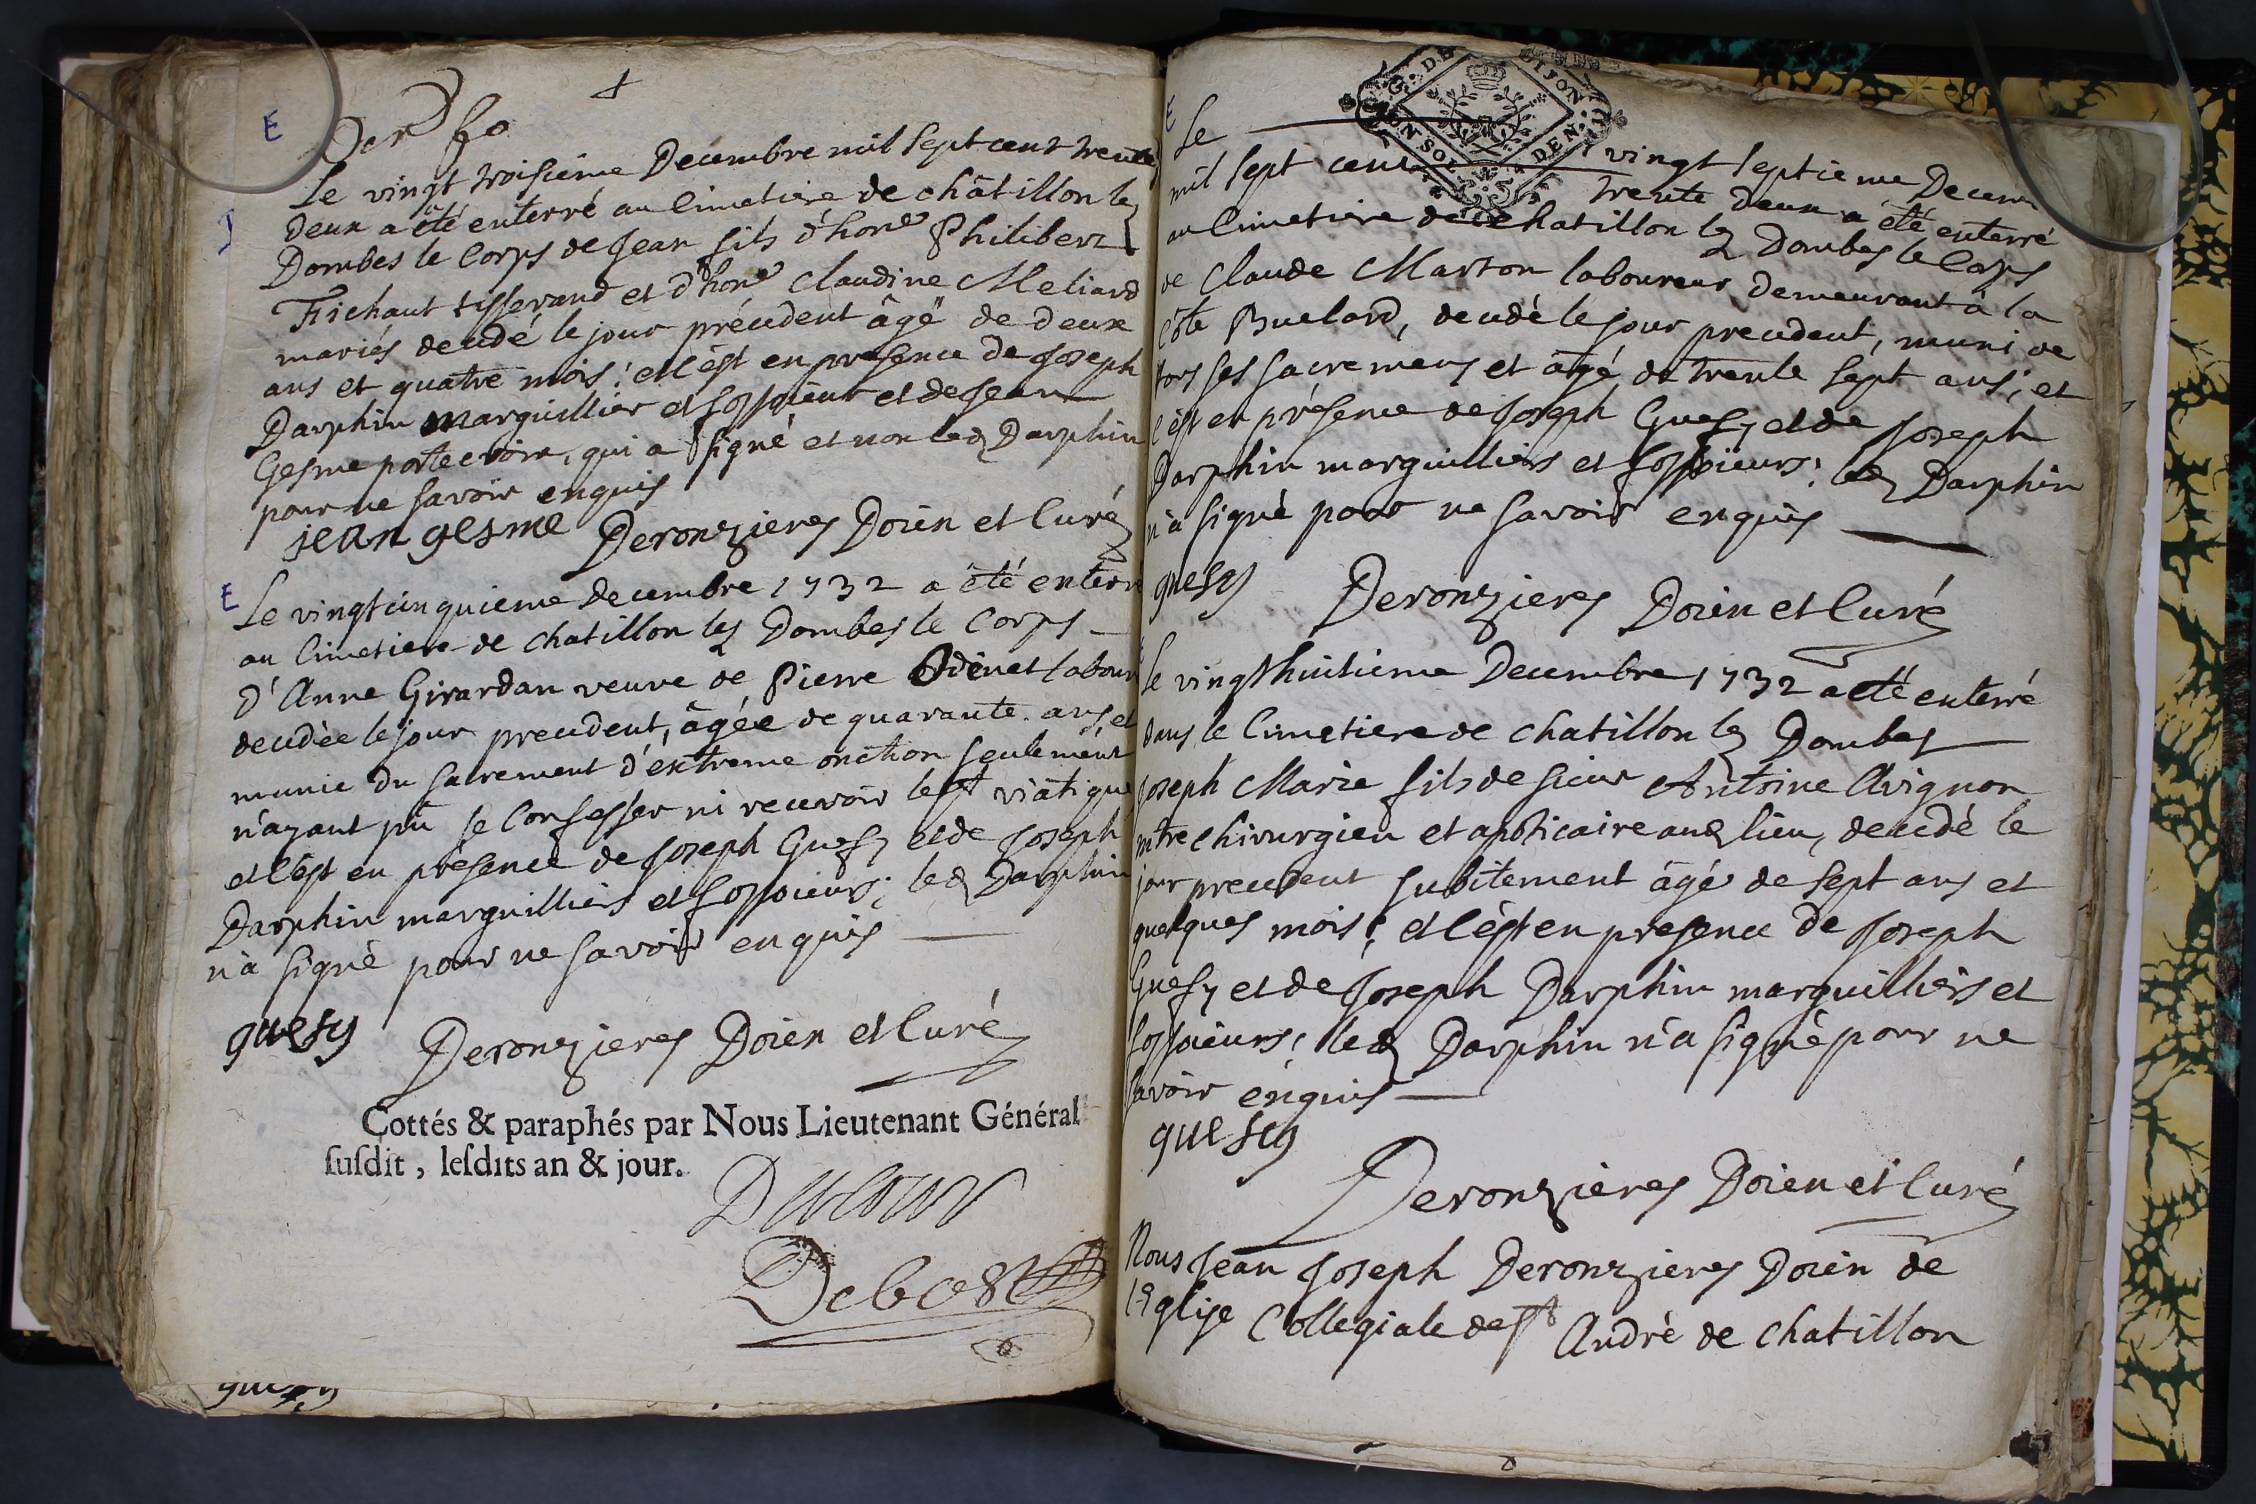 E
Der fo
Le vingt troisieme Decembre mil sept cent trente
deux a êté enterré au Cimetiere de châtillon les
Dombes le Corps de Jean fils d'hon.e Philibert
Fichaut tisserand et d'hon.e Claudine Meliard
mariés decedé le jour précedent âgé de deux
ans et quatre mois; et c'est en presence de Joseph
Darphin marguillier et fossoïeur et de Jean
Gesme porte croix, qui a signé et non led. Darphin
pour ne savoir enquis
jean gesme Deronzieres Doïen et Curé
E
Le vingtcinquieme decembre 1732 a êté enterré
au Cimetiere de chatillon les Dombes le Corps
d'Anne Girardan veuve de Pierre Odinet labour
decedée le jour precedent, âgée de quarante ans et
munie du sacrement d'éxtreme onction seulement
n'ayant pû se Confesser ni recevoir le st viatique
et c'est en presence de Joseph Guesy et de Joseph
Darphin marguilliers et fossoieurs; led. Darphin
n'a signé pour ne savoir enquis
guesy Deronzieres Doïen et Curé
Cottés & paraphés par Nous Lieutenant Général
ſuſdit, leſdits an & jour.
Debost
E
G. DE DIJON
UN SOL DEN.
Le vingt septieme Decem
mil sept cent trente deux a été enterré
au Cimetiere de chatillon les Dombes le Corps
de Claude Marton laboureur demeurant à la
Côte Buelard, decedé le jour precedent, muni de
tous ses sacremens et âgé de trente sept ans; et
c'est en présence de Joseph Guesy et de Joseph
Darphin marguilliers et fossoïeurs; led. Darphin
n'a signé pour ne savoir enquis
guesy Deronzieres Doïen et Curé
Le vingthuitieme Decembre 1732 a été enterré
dans le Cimetiere de chatillon les Dombes
Joseph Marie fils de sieur Antoine Avignon
mtre chirurgien et apoticaire aud. lieu, decedé le
jour precedent subitement âgé de sept ans et
quelques mois; et c'est en presence de Joseph
Guesy et de Joseph Darphin marguilliers et
fossoieurs; led. Darphin n'a signé pour ne
savoir enquis
guesy
Deronzieres Doïen et Curé
Nous Jean Joseph Deronzieres Doïen de
l'Eglise Collegiale de st André de chatillon